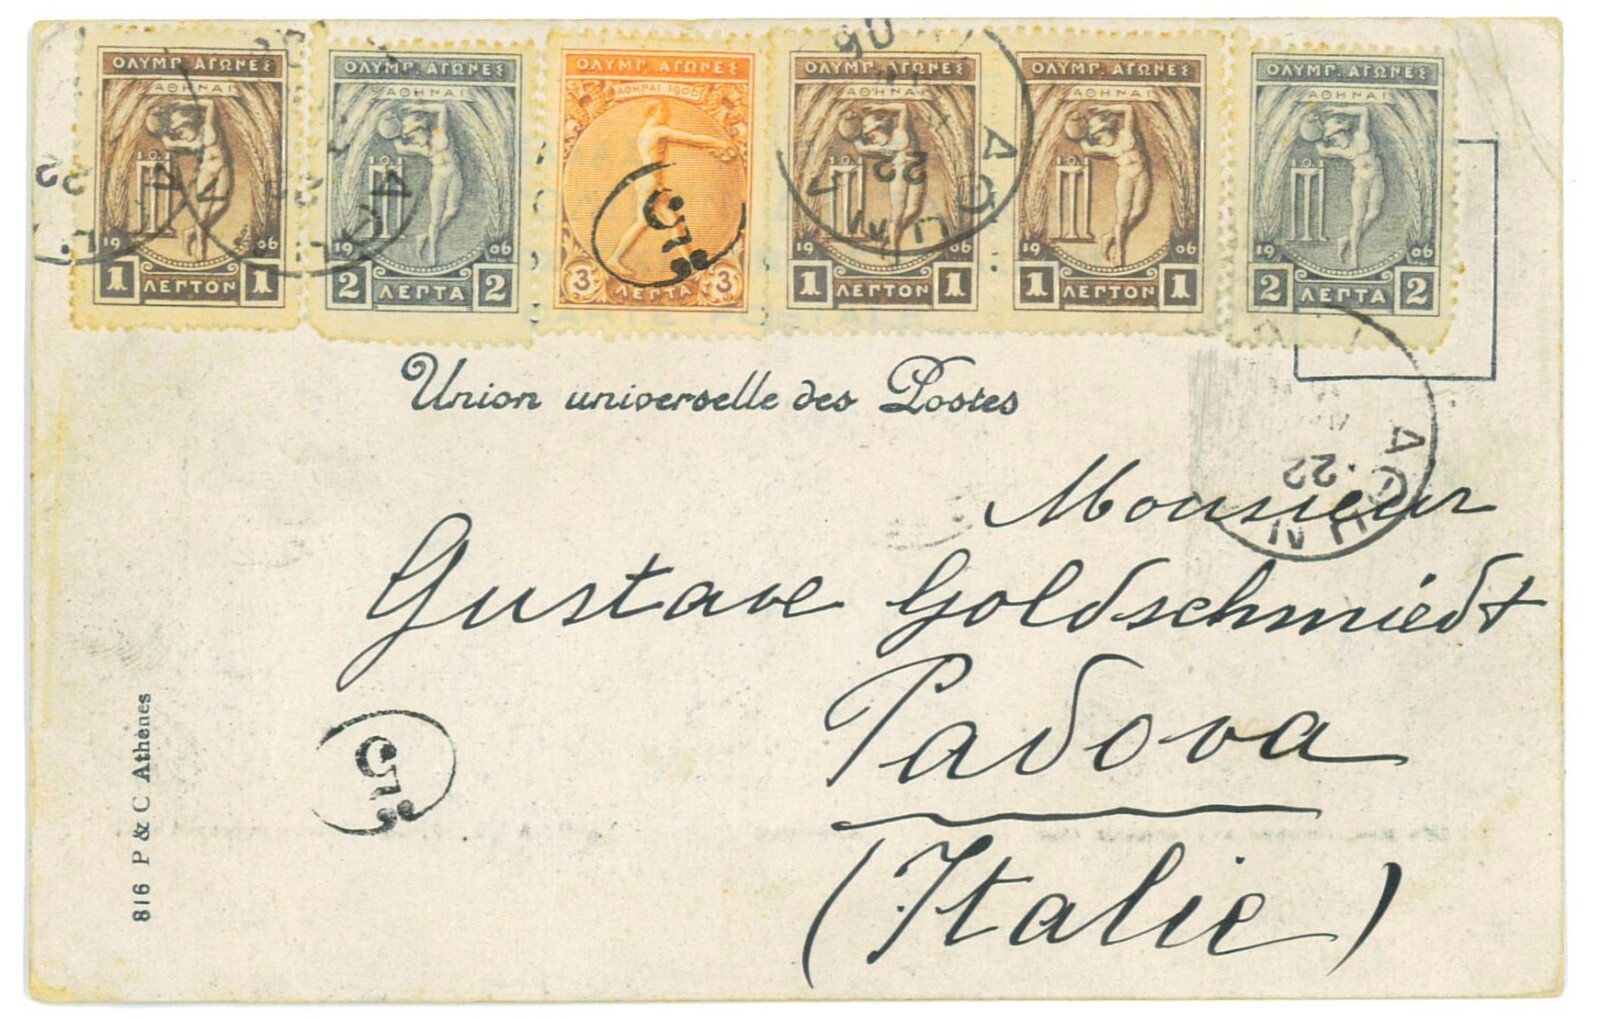 ΟΛΥΜΠ. ΑΓΩΝΕΣ ΟΛΥΜΠ. ΑΓΩΝΕΣ ΟΛΥΜΠ. ΑΓΩΝΕΣ ΟΛΥΜΠ. ΑΓΩΝΕΣ ΟΛΥΜΠ. ΑΓΩΝΕΣ ΟΛΥΜΠ. ΑΓΩΝΕΣ
ΑΘΗΝΑΙ ΑΘΗΝΑΙ ΑΘΗΝΑΙ 1906 ΑΘΗΝΑΙ ΑΘΗΝΑΙ ΑΘΗΝΑΙ
19 06 19 06 19 06 19 06 19 06
1 ΛΕΠΤΟΝ 1 2 ΛΕΠΤΑ 2 3 ΛΕΠΤΑ 3 1 ΛΕΠΤΟΝ 1 1 ΛΕΠΤΟΝ 1 2 ΛΕΠΤΑ 2
22
22
Union universelle des Postes
Monsieur
Gustave Goldschmiedt
Padova
(Italie)
816 P & C Athènes